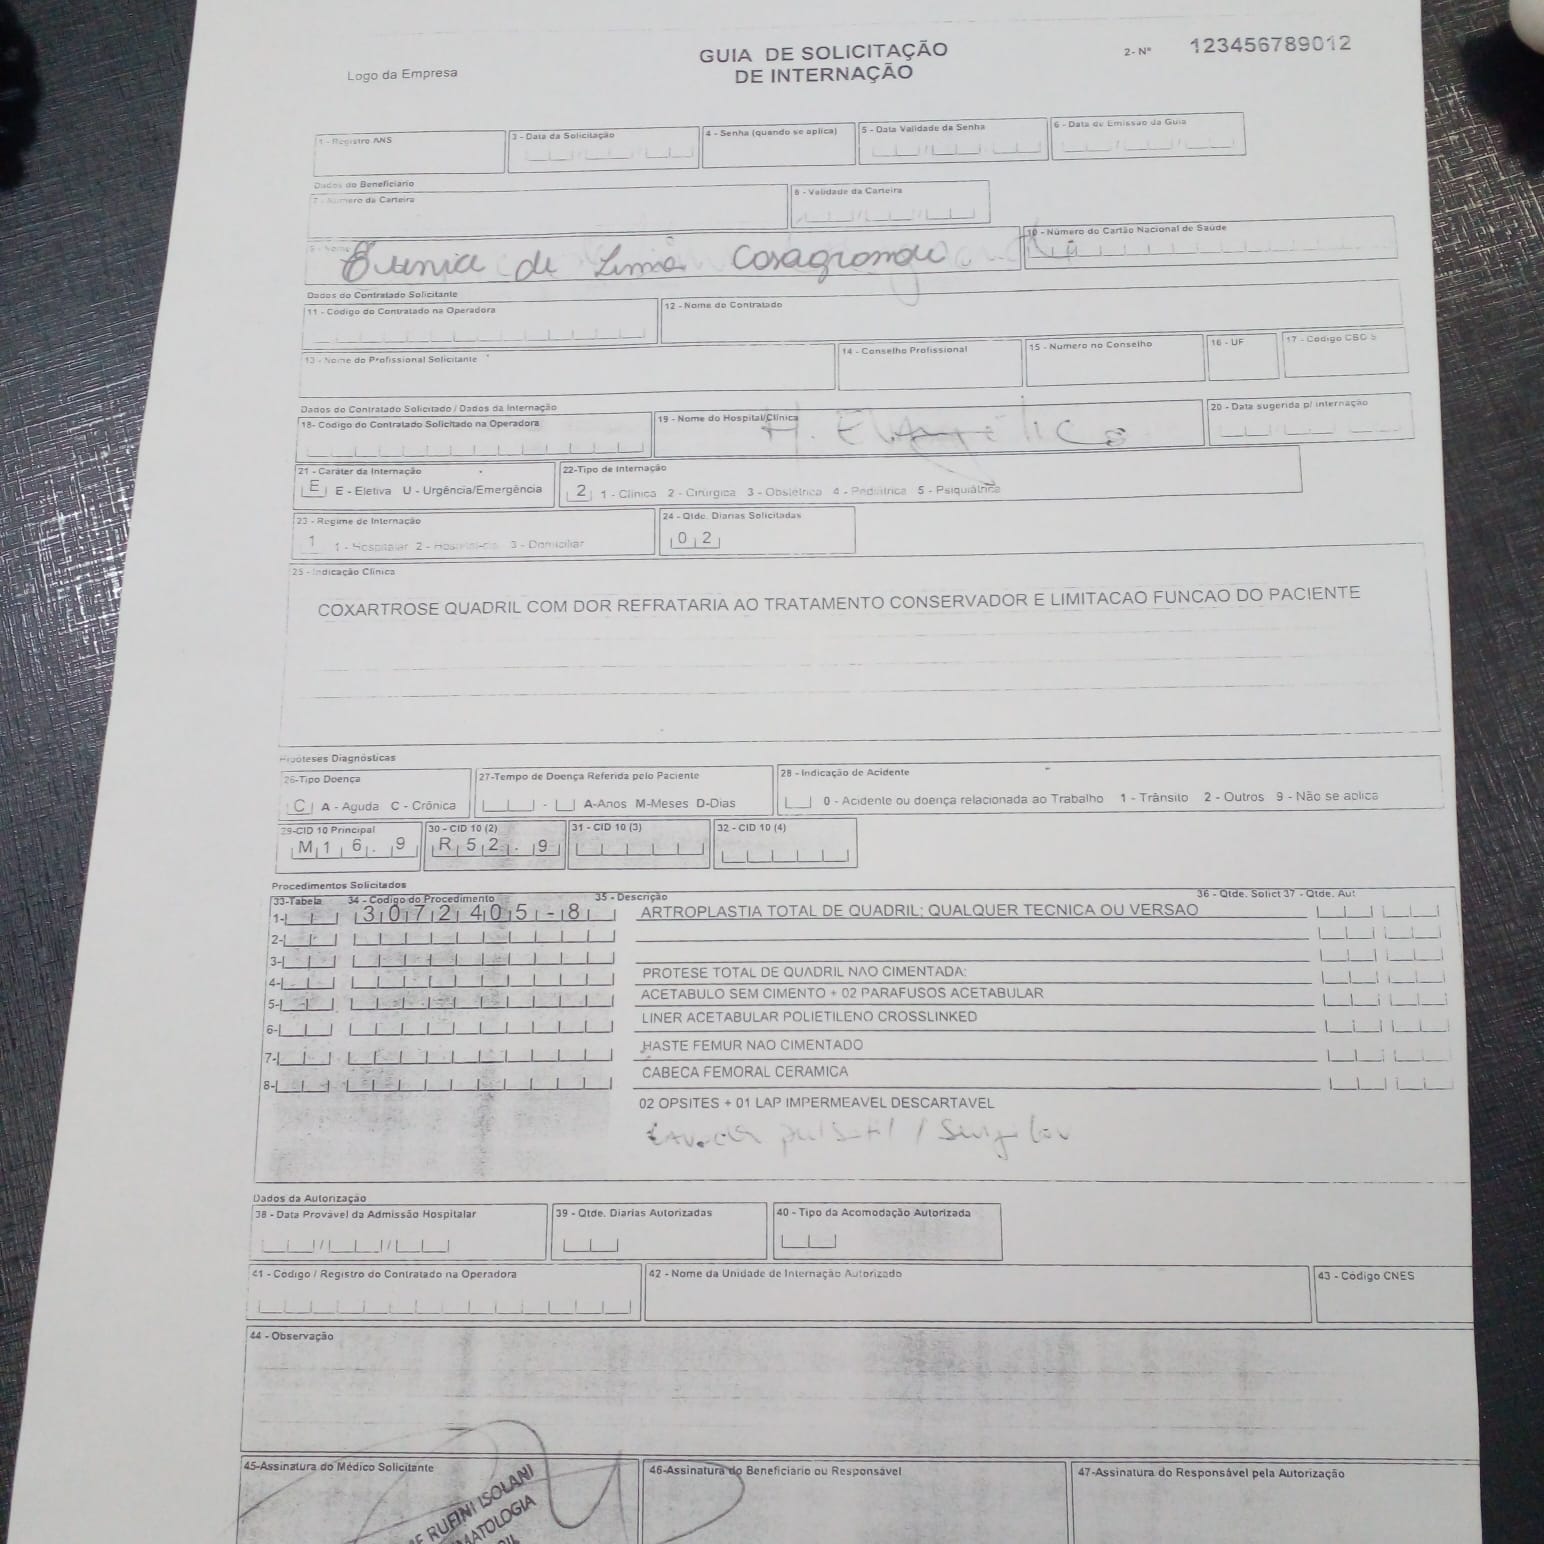 Logo da Empresa
GUIA DE SOLICITAÇÃO
DE INTERNAÇÃO
2- Nº 123456789012
1 - Registro ANS
3 - Data da Solicitação
4 - Senha (quando se aplica)
5 - Data Validade da Senha
6 - Data de Emissão da Guia
Dados do Beneficiário
7 - Número da Carteira
8 - Validade da Carteira
9 - Nome
de Lima Casagrande
10 - Número do Cartão Nacional de Saúde
Dados do Contratado Solicitante
11 - Código do Contratado na Operadora
12 - Nome do Contratado
13 - Nome do Profissional Solicitante
14 - Conselho Profissional
15 - Número no Conselho
16 - UF
17 - Código CBO S
Dados do Contratado Solicitado / Dados da Internação
18- Código do Contratado Solicitado na Operadora
19 - Nome do Hospital/Clínica
H. Evangélico
20 - Data sugerida p/ internação
21 - Caráter da Internação
E E - Eletiva U - Urgência/Emergência
22-Tipo de Internação
2 1 - Clínica 2 - Cirúrgica 3 - Obstétrica 4 - Pediátrica 5 - Psiquiátrica
23 - Regime de Internação
1 1 - Hospitalar 2 - 3 - Domiciliar
24 - Qtde. Diárias Solicitadas
02
25 - Indicação Clínica
COXARTROSE QUADRIL COM DOR REFRATARIA AO TRATAMENTO CONSERVADOR E LIMITACAO FUNCAO DO PACIENTE
Hipóteses Diagnósticas
26-Tipo Doença
C A - Aguda C - Crônica
27-Tempo de Doença Referida pelo Paciente
- A-Anos M-Meses D-Dias
28 - Indicação de Acidente
0 - Acidente ou doença relacionada ao Trabalho 1 - Trânsito 2 - Outros 9 - Não se aplica
29-CID 10 Principal
M16.9
30 - CID 10 (2)
R52.9
31 - CID 10 (3)
32 - CID 10 (4)
Procedimentos Solicitados
33-Tabela 34 - Código do Procedimento 35 - Descrição 36 - Qtde. Solict 37 - Qtde. Aut
1- 3072405-8 ARTROPLASTIA TOTAL DE QUADRIL; QUALQUER TECNICA OU VERSAO
2-
3-
4- PROTESE TOTAL DE QUADRIL NAO CIMENTADA:
5- ACETABULO SEM CIMENTO + 02 PARAFUSOS ACETABULAR
6- LINER ACETABULAR POLIETILENO CROSSLINKED
7- HASTE FEMUR NAO CIMENTADO
8- CABECA FEMORAL CERAMICA
02 OPSITES + 01 LAP IMPERMEAVEL DESCARTAVEL
pulsatil /
Dados da Autorização
38 - Data Provável da Admissão Hospitalar
39 - Qtde. Diarias Autorizadas
40 - Tipo da Acomodação Autorizada
41 - Código / Registro do Contratado na Operadora
42 - Nome da Unidade de Internação Autorizado
43 - Código CNES
44 - Observação
45-Assinatura do Médico Solicitante
RUFINI ISOLANI
46-Assinatura do Beneficiário ou Responsável
47-Assinatura do Responsável pela Autorização